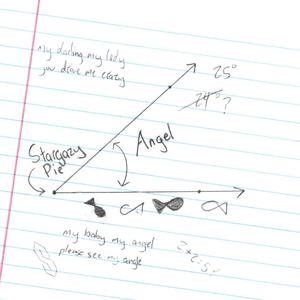 my darling my lady
you drive me crazy
25°
24°?
Angel
Stargazy
Pie
my baby my angel
please see my angle
2+2=5?